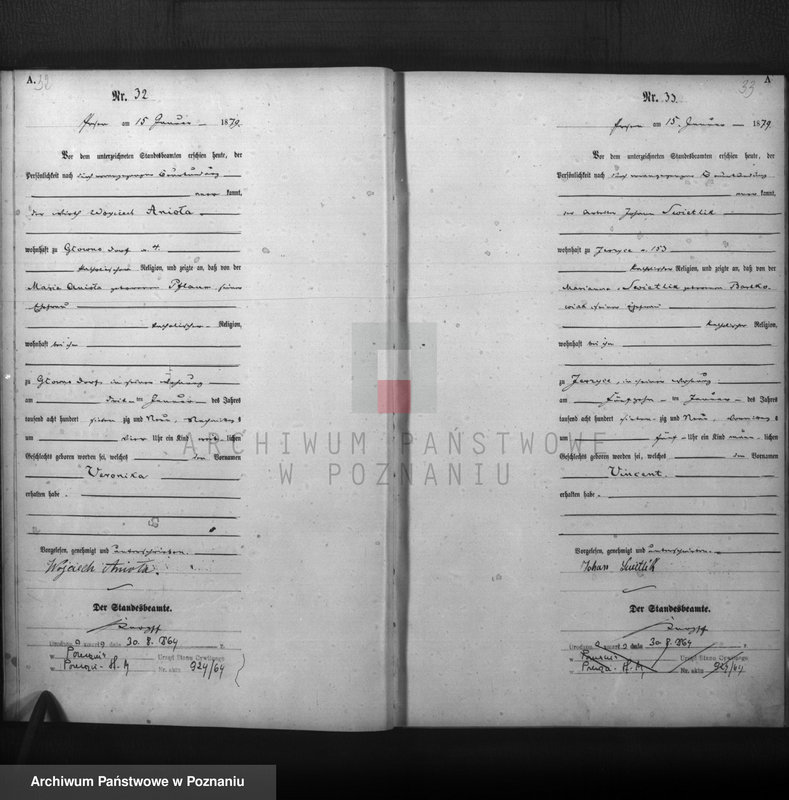 A. 32
Nr. 32
Posen am 15 Januar 1879
Vor dem unterzeichneten Standesbeamten erschien heute, der
Persönlichkeit nach
kannt,
der Wirth Woyciech Anioła
wohnhaft zu Glowno Dorf n. 4
katholischer Religion, und zeigte an, daß von der
Maria Anioła geborenen Pflaum, seiner
Ehefrau
katholischer Religion,
wohnhaft bei ihm
zu Glowno Dorf in seiner Wohnung
am drei ten Januar des Jahres
tausend acht hundert sieben zig und Neun, Nachmittags
um vier Uhr ein Kind weib lichen
Geschlechts geboren worden sei, welches den Vornamen
Veronika
erhalten habe.
Vorgelesen, genehmigt und unterschrieben.
Wojciech Anioła.
Der Standesbeamte.
30. 8. 1964 r.
w Poznaniu Urząd Stanu Cywilnego
w Nr. aktu 924/64
A 33
Nr. 33
Posen am 15. Januar 1879
Vor dem unterzeichneten Standesbeamten erschien heute, der
Persönlichkeit nach
kannt,
der Johann Swietlik
wohnhaft zu Jerzyce n. 153
katholischer Religion, und zeigte an, daß von der
Marianna Swietlik geborenen Bartko
wiak seiner Ehefrau
katholischer Religion,
wohnhaft bei ihm
zu Jerzyce, in seiner Wohnung
am fünfzehn ten Januar des Jahres
tausend acht hundert sieben zig und Neun, Vormittags
um fünf Uhr ein Kind männ lichen
Geschlechts geboren worden sei, welches den Vornamen
Vincent
erhalten habe.
Vorgelesen, genehmigt und unterschrieben.
Johan Swietlik
Der Standesbeamte.
30. 8. 64 r.
w Poznaniu Urząd Stanu Cywilnego
w Nr. aktu 924/64
ARCHIWUM PAŃSTWOWE
W POZNANIU
Archiwum Państwowe w Poznaniu